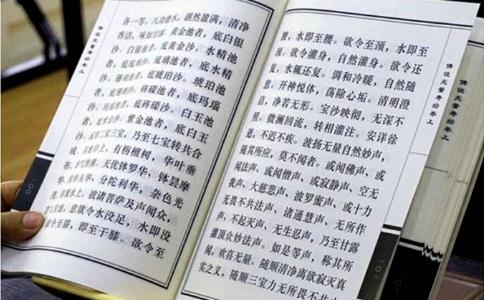 各一等。八功德水，湛然盈满，清净
香洁，味如甘露。黄金池者，底白银
沙。白银池者，底黄金沙。水精池
者，底琉璃沙。琉璃池者，底水精
沙。珊瑚池者，底琥珀沙。琥珀池
者，底珊瑚沙。砗磲池者，底玛瑙
沙。玛瑙池者，底砗磲沙。白玉池
者，底紫金沙。紫金池者，底白玉
沙。或二宝三宝，乃至七宝转共合
成。其池岸上，有栴檀树，华叶垂
布，香气普熏。天优钵罗华、钵昙摩
华、拘物头华、分陀利华，杂色光
茂，弥覆水上。彼诸菩萨及声闻众，
若入宝池，意欲令水没足，水即没
足。欲令至膝，即至于膝。欲令至
腰，水即至腰。欲令至颈，水即至
颈。欲令灌身，自然灌身。欲令还
复，水辄还复。调和冷暖，自然随
意。开神悦体，荡除心垢。清明澄
洁，净若无形。宝沙映彻，无深不
照。微澜回流，转相灌注。安详徐
逝，不迟不疾。波扬无量自然妙声，
随其所应，莫不闻者。或闻佛声，或
闻法声，或闻僧声。或寂静声，空无
我声，大慈悲声，波罗蜜声，或十力
无畏不共法声，诸通慧声，无所作
声，不起灭声，无生忍声，乃至甘露
灌顶众妙法声。如是等声，称其所
闻，欢喜无量。随顺清净离欲寂灭真
实之义，随顺三宝力无所畏不共
佛说无量寿经卷上
佛说无量寿经卷上